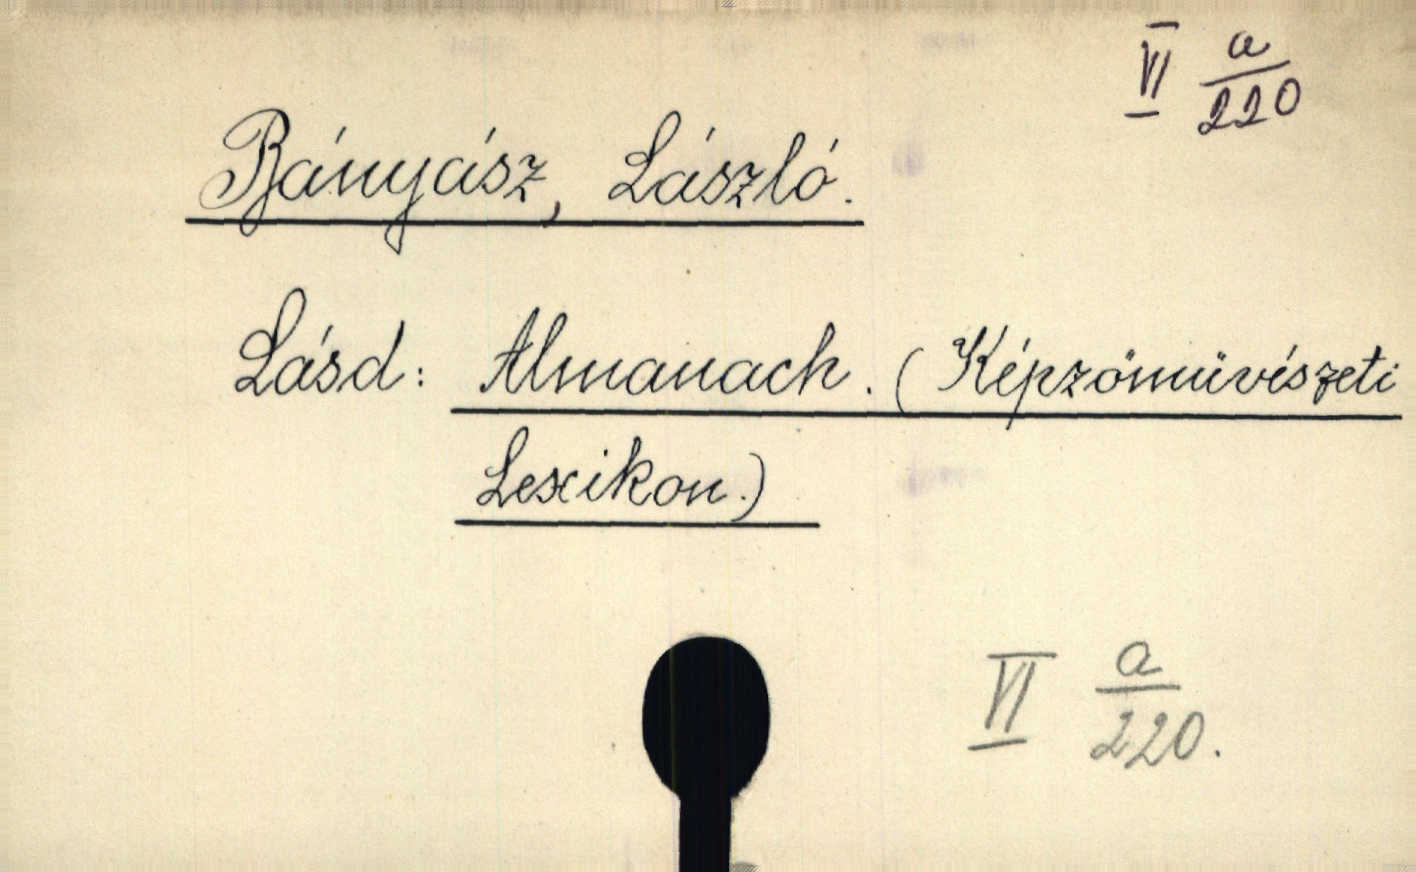 VI a/220
Bányász, László.
Lásd: Almanach. (Képzőművészeti
Lexikon.)
VI a/220.